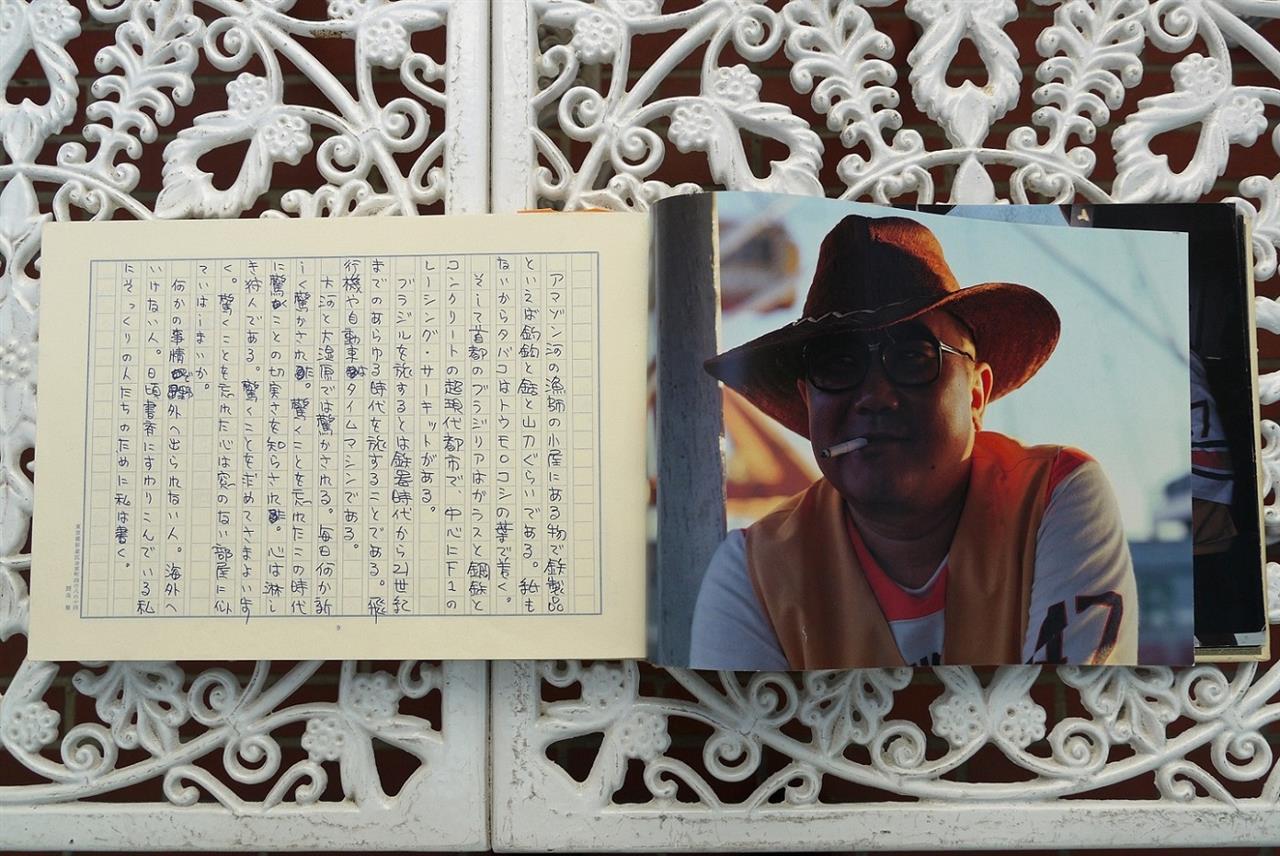 アマゾン河の漁師の小屋にある物で鉄製品
といえば釣鈎と銛と山刀ぐらいである。紙も
ないからタバコはトウモロコシの葉で巻く。
そして首都のブラジリアはガラスと鋼鉄と
コンクリートの超現代都市で、中心にF1の
レーシング・サーキットがある。
ブラジルを旅するとは鉄器時代から21世紀
までのあらゆる時代を旅することである。飛
行機や自動車はタイムマシンである。
大河と大湿原では驚かされる。毎日何か新
しく驚かされる。驚くことを忘れたこの時代
に驚くことの切実さを知らされる。心は淋し
き狩人である。驚くことを求めてさまよい歩
く。驚くことを忘れた心は窓のない部屋に似
ていはしまいか。
何かの事情で野外へ出られない人。海外へ
いけない人。日頃書斎にすわりこんでいる私
にそっくりの人たちのために私は書く。
開高 健
9
47